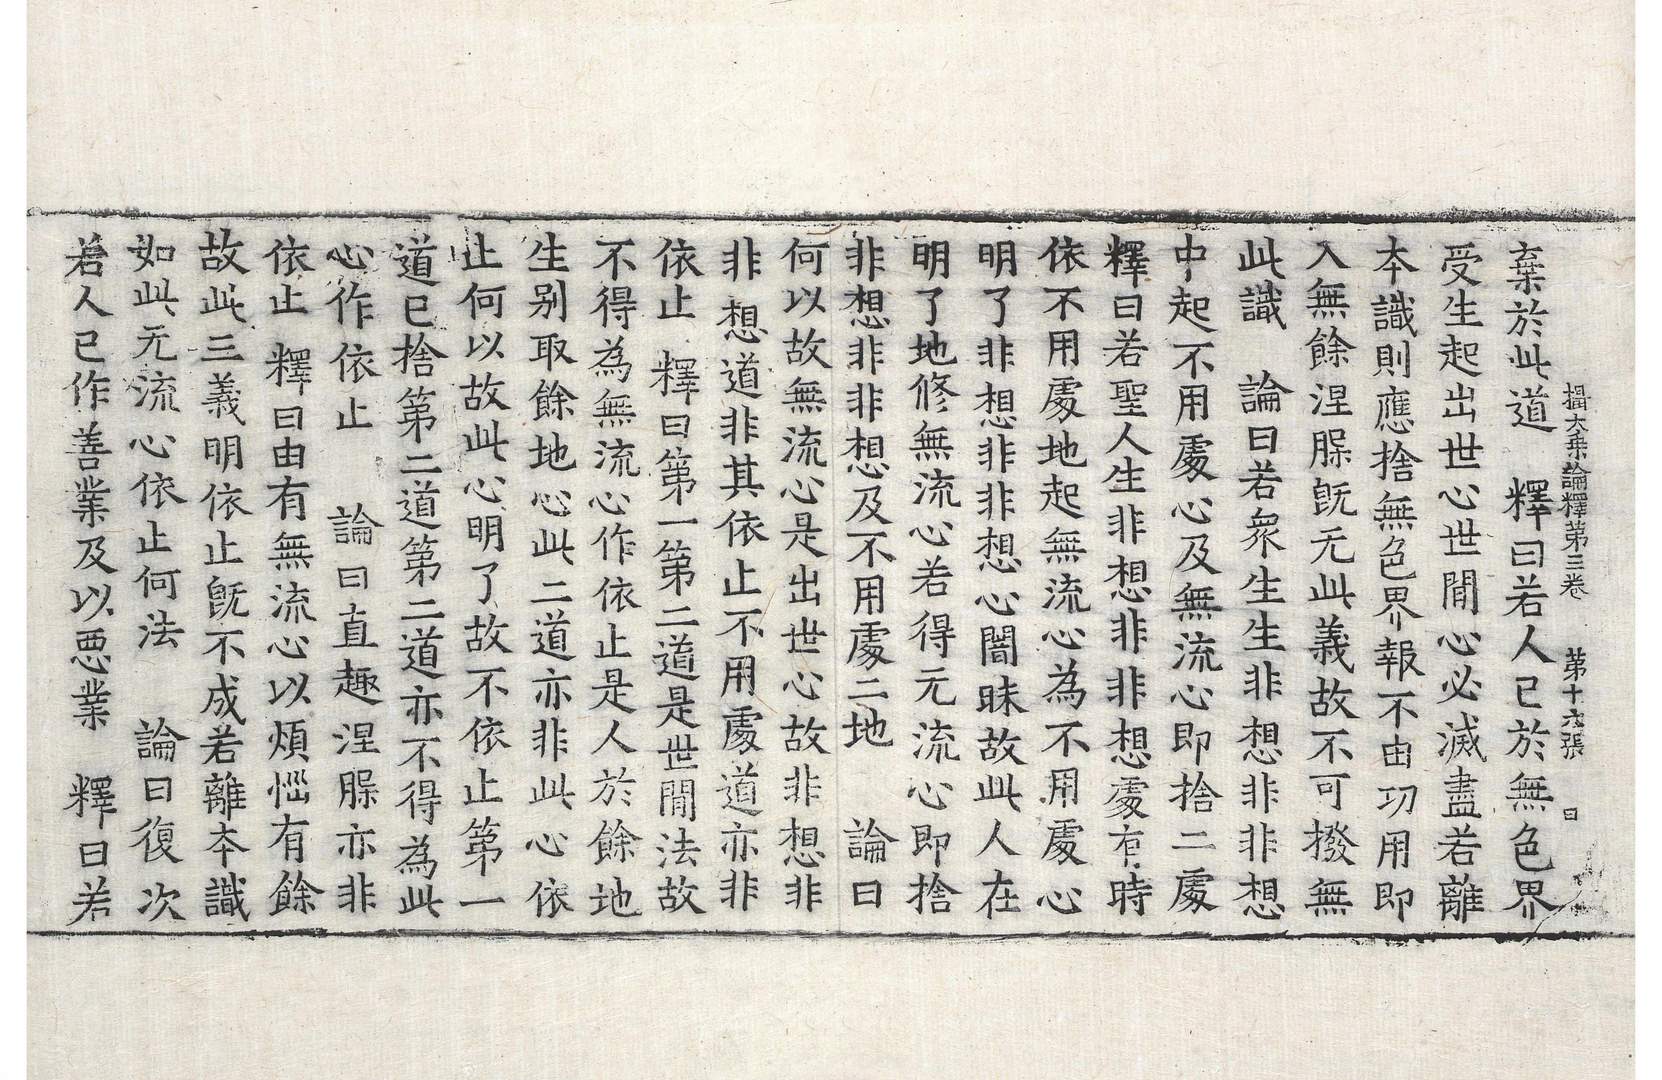 攝大乗論釋第三卷 第十六張 曰
棄於此道 釋曰若人已於無色界
受生起出世心世間心必滅盡若離
本識則應捨無色界報不由功用即
入無餘涅槃旣无此義故不可撥無
此識 論曰若衆生生非想非非想
中起不用處心及無流心即捨二處
釋曰若聖人生非想非非想處有時
依不用處地起無流心為不用處心
明了非想非非想心闇昧故此人在
明了地修無流心若得无流心即捨
非想非非想及不用處二地 論曰
何以故無流心是出世心故非想非
非想道非其依止不用處道亦非
依止 釋曰第一第二道是世間法故
不得為無流心作依止是人於餘地
生别取餘地心此二道亦非此心依
止何以故此心明了故不依止第一
道已捨第二道第二道亦不得為此
心作依止 論曰直趣涅槃亦非
依止 釋曰由有無流心以煩惱有餘
故此三義明依止旣不成若離本識
如此无流心依止何法 論曰復次
若人已作善業及以悪業 釋曰若